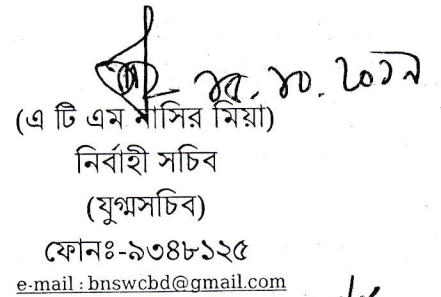 (এ টি এম নাসির মিয়া)
নির্বাহী সচিব
(যুগ্মসচিব)
ফোনঃ-৯৩৪৮১২৫
e-mail : bnswcbd@gmail.com